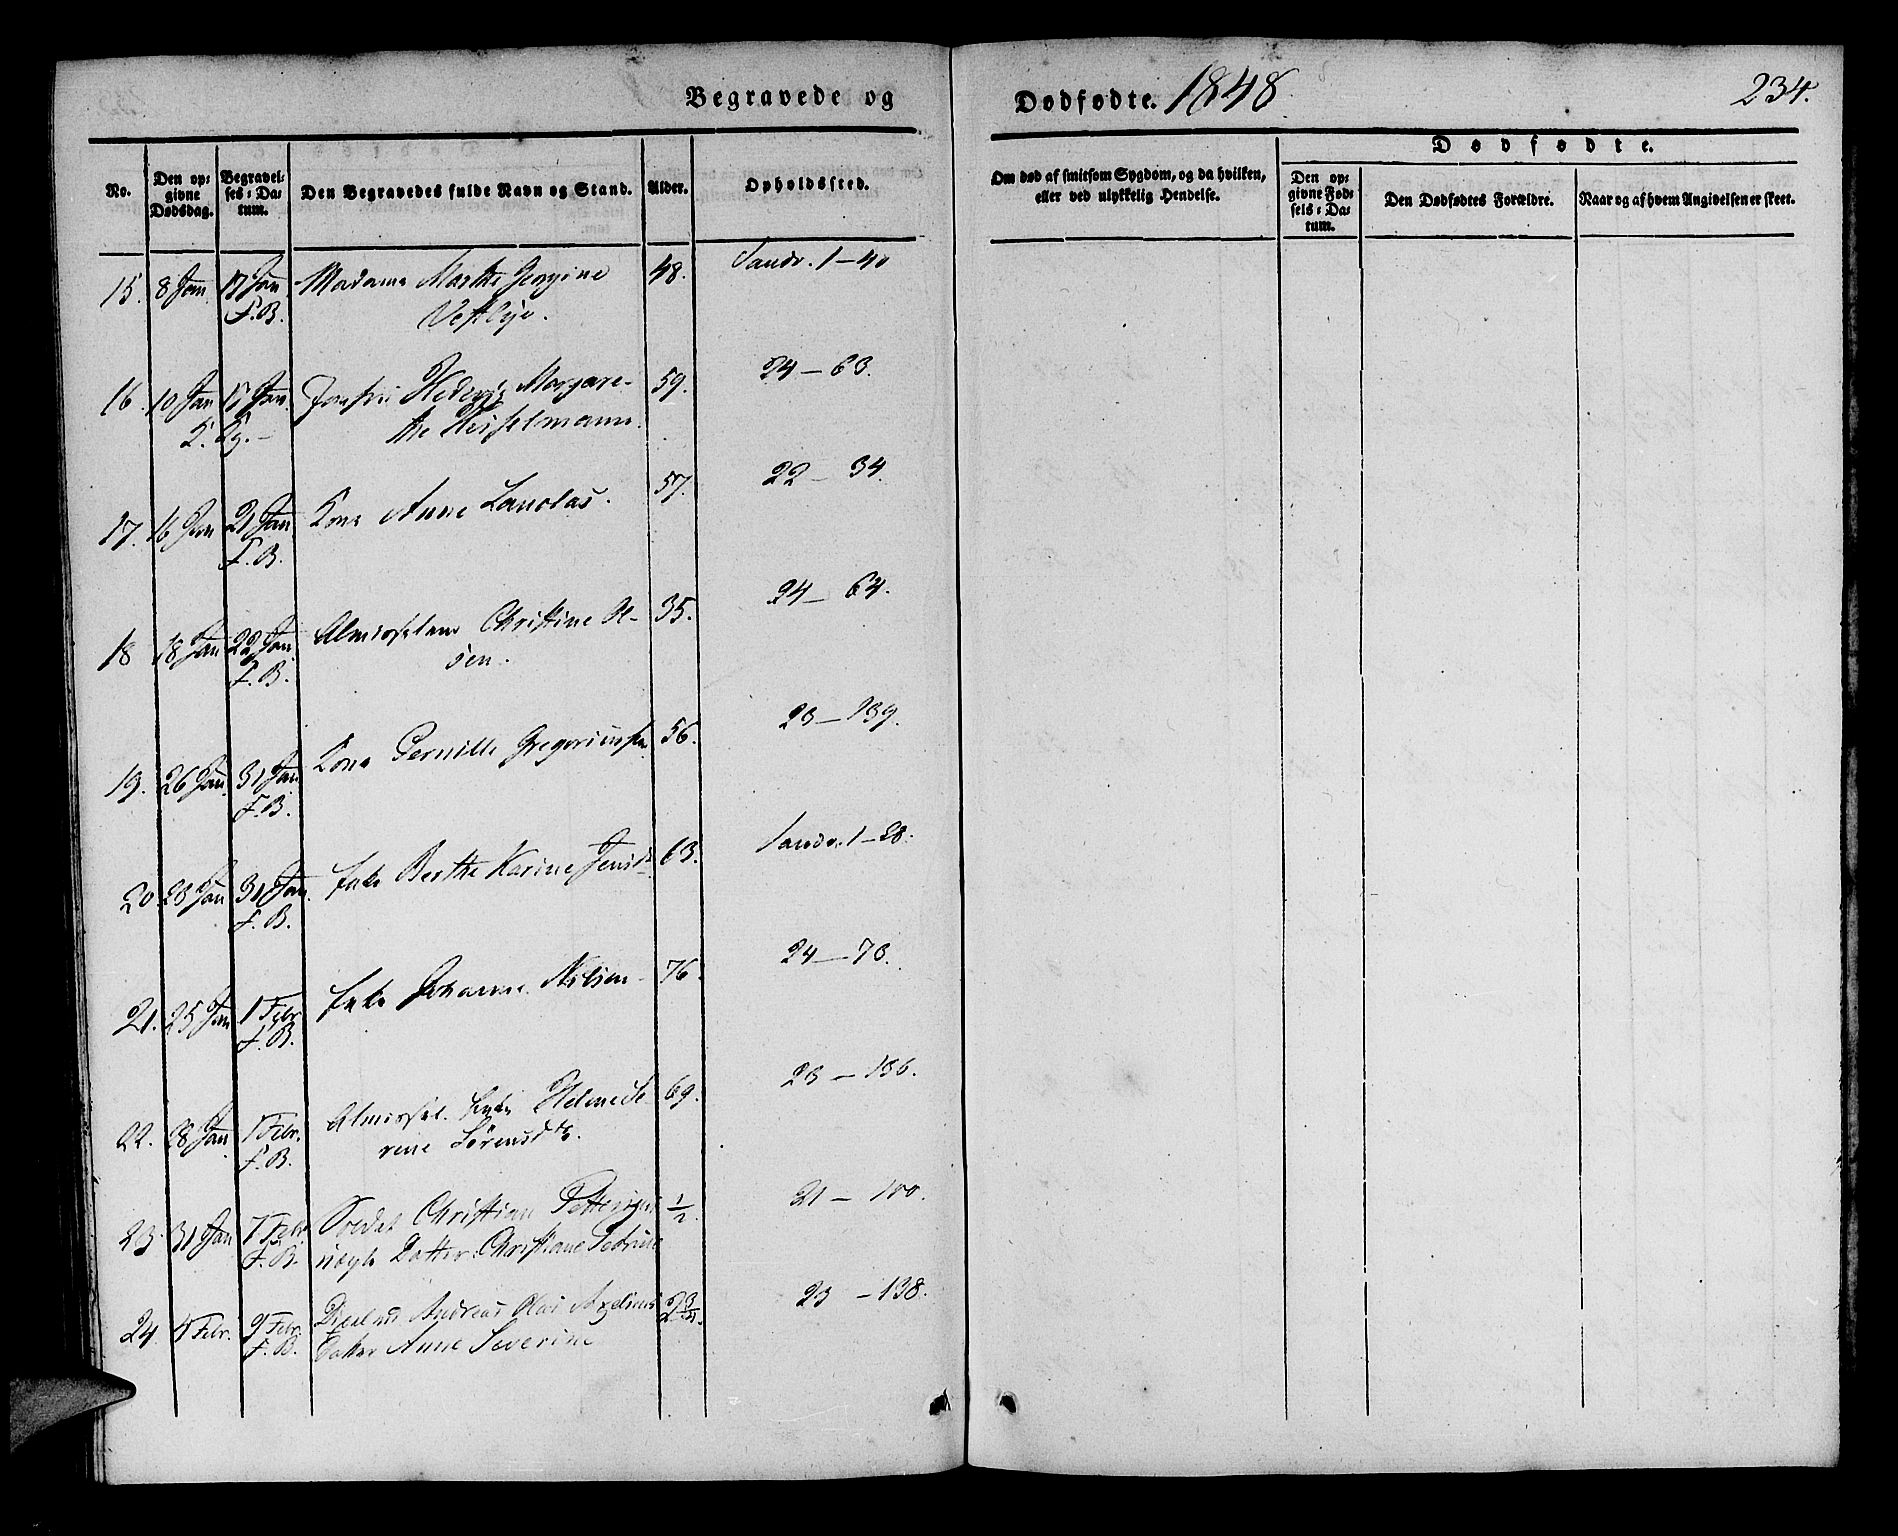 Begravede og
Dødfødte. 1848
234.
No.
Den opgivne Dødsdag.
Begravelses-Datum.
Den Begravedes fulde Navn og Stand.
Alder.
Opholdssted.
Om død af smitsom Sygdom, og da hvilken, eller ved ulykkelig Hendelse.
Dødfødte.
Den opgivne Fødsels-Datum.
Den Dødfødtes Forældre.
Naar og af hvem Angivelsen er skeet.
15. 8 Jan 17 Jan Madame Marthe Georgine 48. Sandv. 1 — 40
F. B. Vestbye.
16. 10 Jan 17 Jan. Jomfru Hedevig Margare- 59. 24 — 63.
K. Kg. — the
17. 16 Jan 21 Jan Kone Anne 57. 22 — 34.
F. B.
18 18 Jan 22 Jan Almisselem Christine Ol- 35. 24 — 64.
F. B. sen.
19. 26 Jan 31 Jan Kone Pernille Gregoriussen 56. 23 — 139.
F. B.
20. 28 Jan 31 Jan. Enke Berthe Karine Jensdr 63. Sandv. 1 — 28.
F. B.
21. 25 Jan 1 Febr Enke Johanne Nilsen 76. 24 — 73.
F. B.
22. 28 Jan 1 Febr. Almissel. Enke Helene Se- 69. 23 — 136.
F. B. rine Sørensdtr.
23. 31 Jan 7 Febr Soldat Christian 1/2. 21 — 100.
F. B. uægte Datter: Christiane
24. 4 Febr. 9 Febr. Andreas Olai 23 — 138.
F. B. Datter Anne Severine